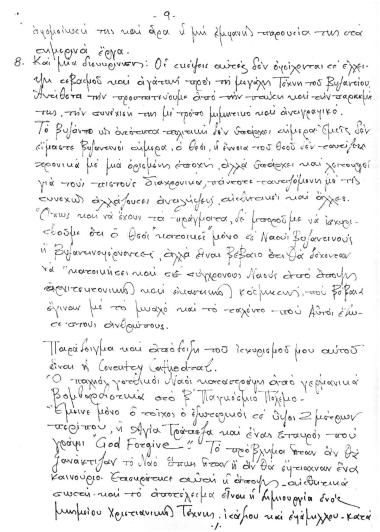 - 9 -
αφομοίωσή της και άρα ή μή έμφανής παρουσία της στα
σημερινά έργα.
8. Και μιά διευκρίνιση: Οι σκέψεις αυτές δεν οφείλονται σε έλλει-
ψη σεβασμού και αγάπης προς τη μεγάλη Τέχνη του Βυζαντίου.
Αντίθετα την προστατεύουμε από την πτώση και την παρακμή
της, την συνέχισή της με τρόπο μιμητικό και αναγραφικό.
Το Βυζάντιο ως ανώτατο σχολικό δεν υπάρχει σήμερα· εμείς δεν
είμαστε Βυζαντινοί σήμερα. Ο Θεός, ή έννοια του Θεού δεν ταυτίζεται
χρονικά με μιά ορισμένη εποχή, αλλά υπάρχει και λειτουργεί
γιά τους πιστούς διαχρονικά, πάντοτε ταυτιζόμενη με τις
συνεχώς αλλάζουσες αντιλήψεις, αισθητικές και άλλες.
Όπως και νά έχουν τα πράγματα, δε μπορούμε νά ισχυρι-
στούμε ότι ο Θεός "κατοικεί" μόνο σε Ναούς Βυζαντινούς
ή Βυζαντινογενούς, αλλά είναι βέβαιο ότι θα δέχονταν
νά "κατοικήσει και σε σύγχρονους Ναούς από άποψη
αρχιτεκτονικής και εικαστικής κόσμησης, που βέβαια
έγιναν με το μυαλό και το ταλέντο που Αυτός έδω-
σε στους ανθρώπους.
Παράδειγμα και απόδειξη του ισχυρισμού μου αυτού
είναι η Coventry Cathedral.
"Ο παλιός γοτθικός Ναός καταστράφηκε από γερμανικό
βομβαρδιστικό στο Β' Παγκόσμιο Πόλεμο.
"Έμεινε μόνο ο τοίχος ο εξωτερικός σε ύψος 2 μέτρων
περίπου, η Αγία Τράπεζα και ένας σταυρός που
γράφει "God Forgive—" Το πρόβλημα ήταν αν θα
ξανάκτιζαν το Ναό όπως ήταν ή αν θα έφτιαχναν ένα
καινούριο. Επεκράτησε αυτή η άποψη – αισθητικά
σωστή – και το αποτέλεσμα είναι η δημιουργία ενός
μνημείου Χριστιανικής Τέχνης, ισάξιου και εφάμιλλου – κατά